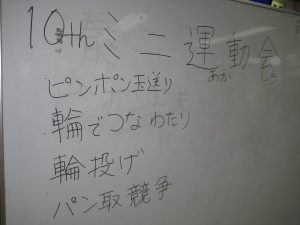 10th ミニ運動会
あか しろ
ピンポン玉送り
輪でつなわたり
輪投げ
パン取競争